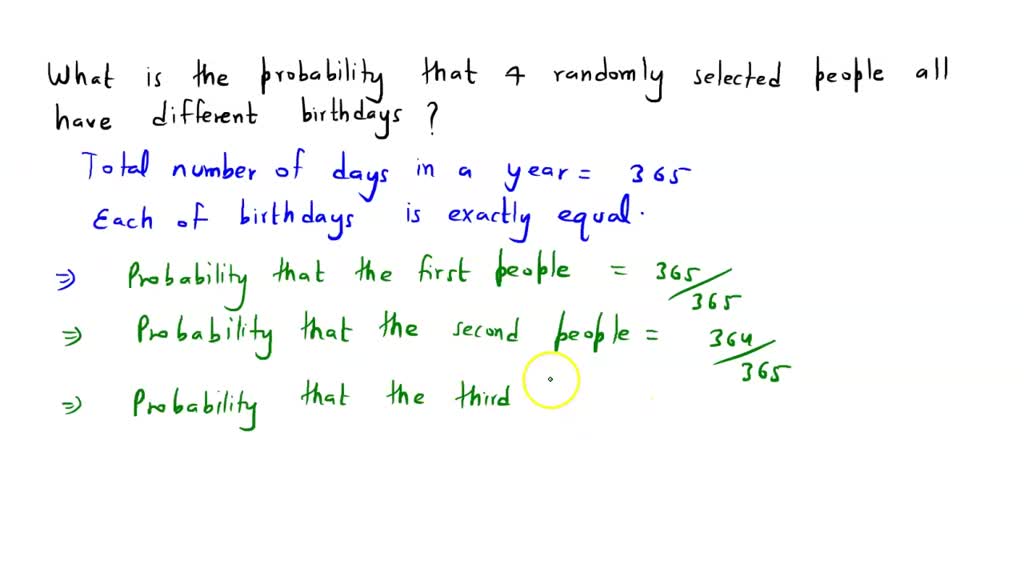 What is the probability that 4 randomly selected people all
have different birthdays ?
Total number of days in a year = 365
Each of birthdays is exactly equal.
⇒ Probability that the first people = 365/365
⇒ Probability that the second people = 364/365
⇒ Probability that the third